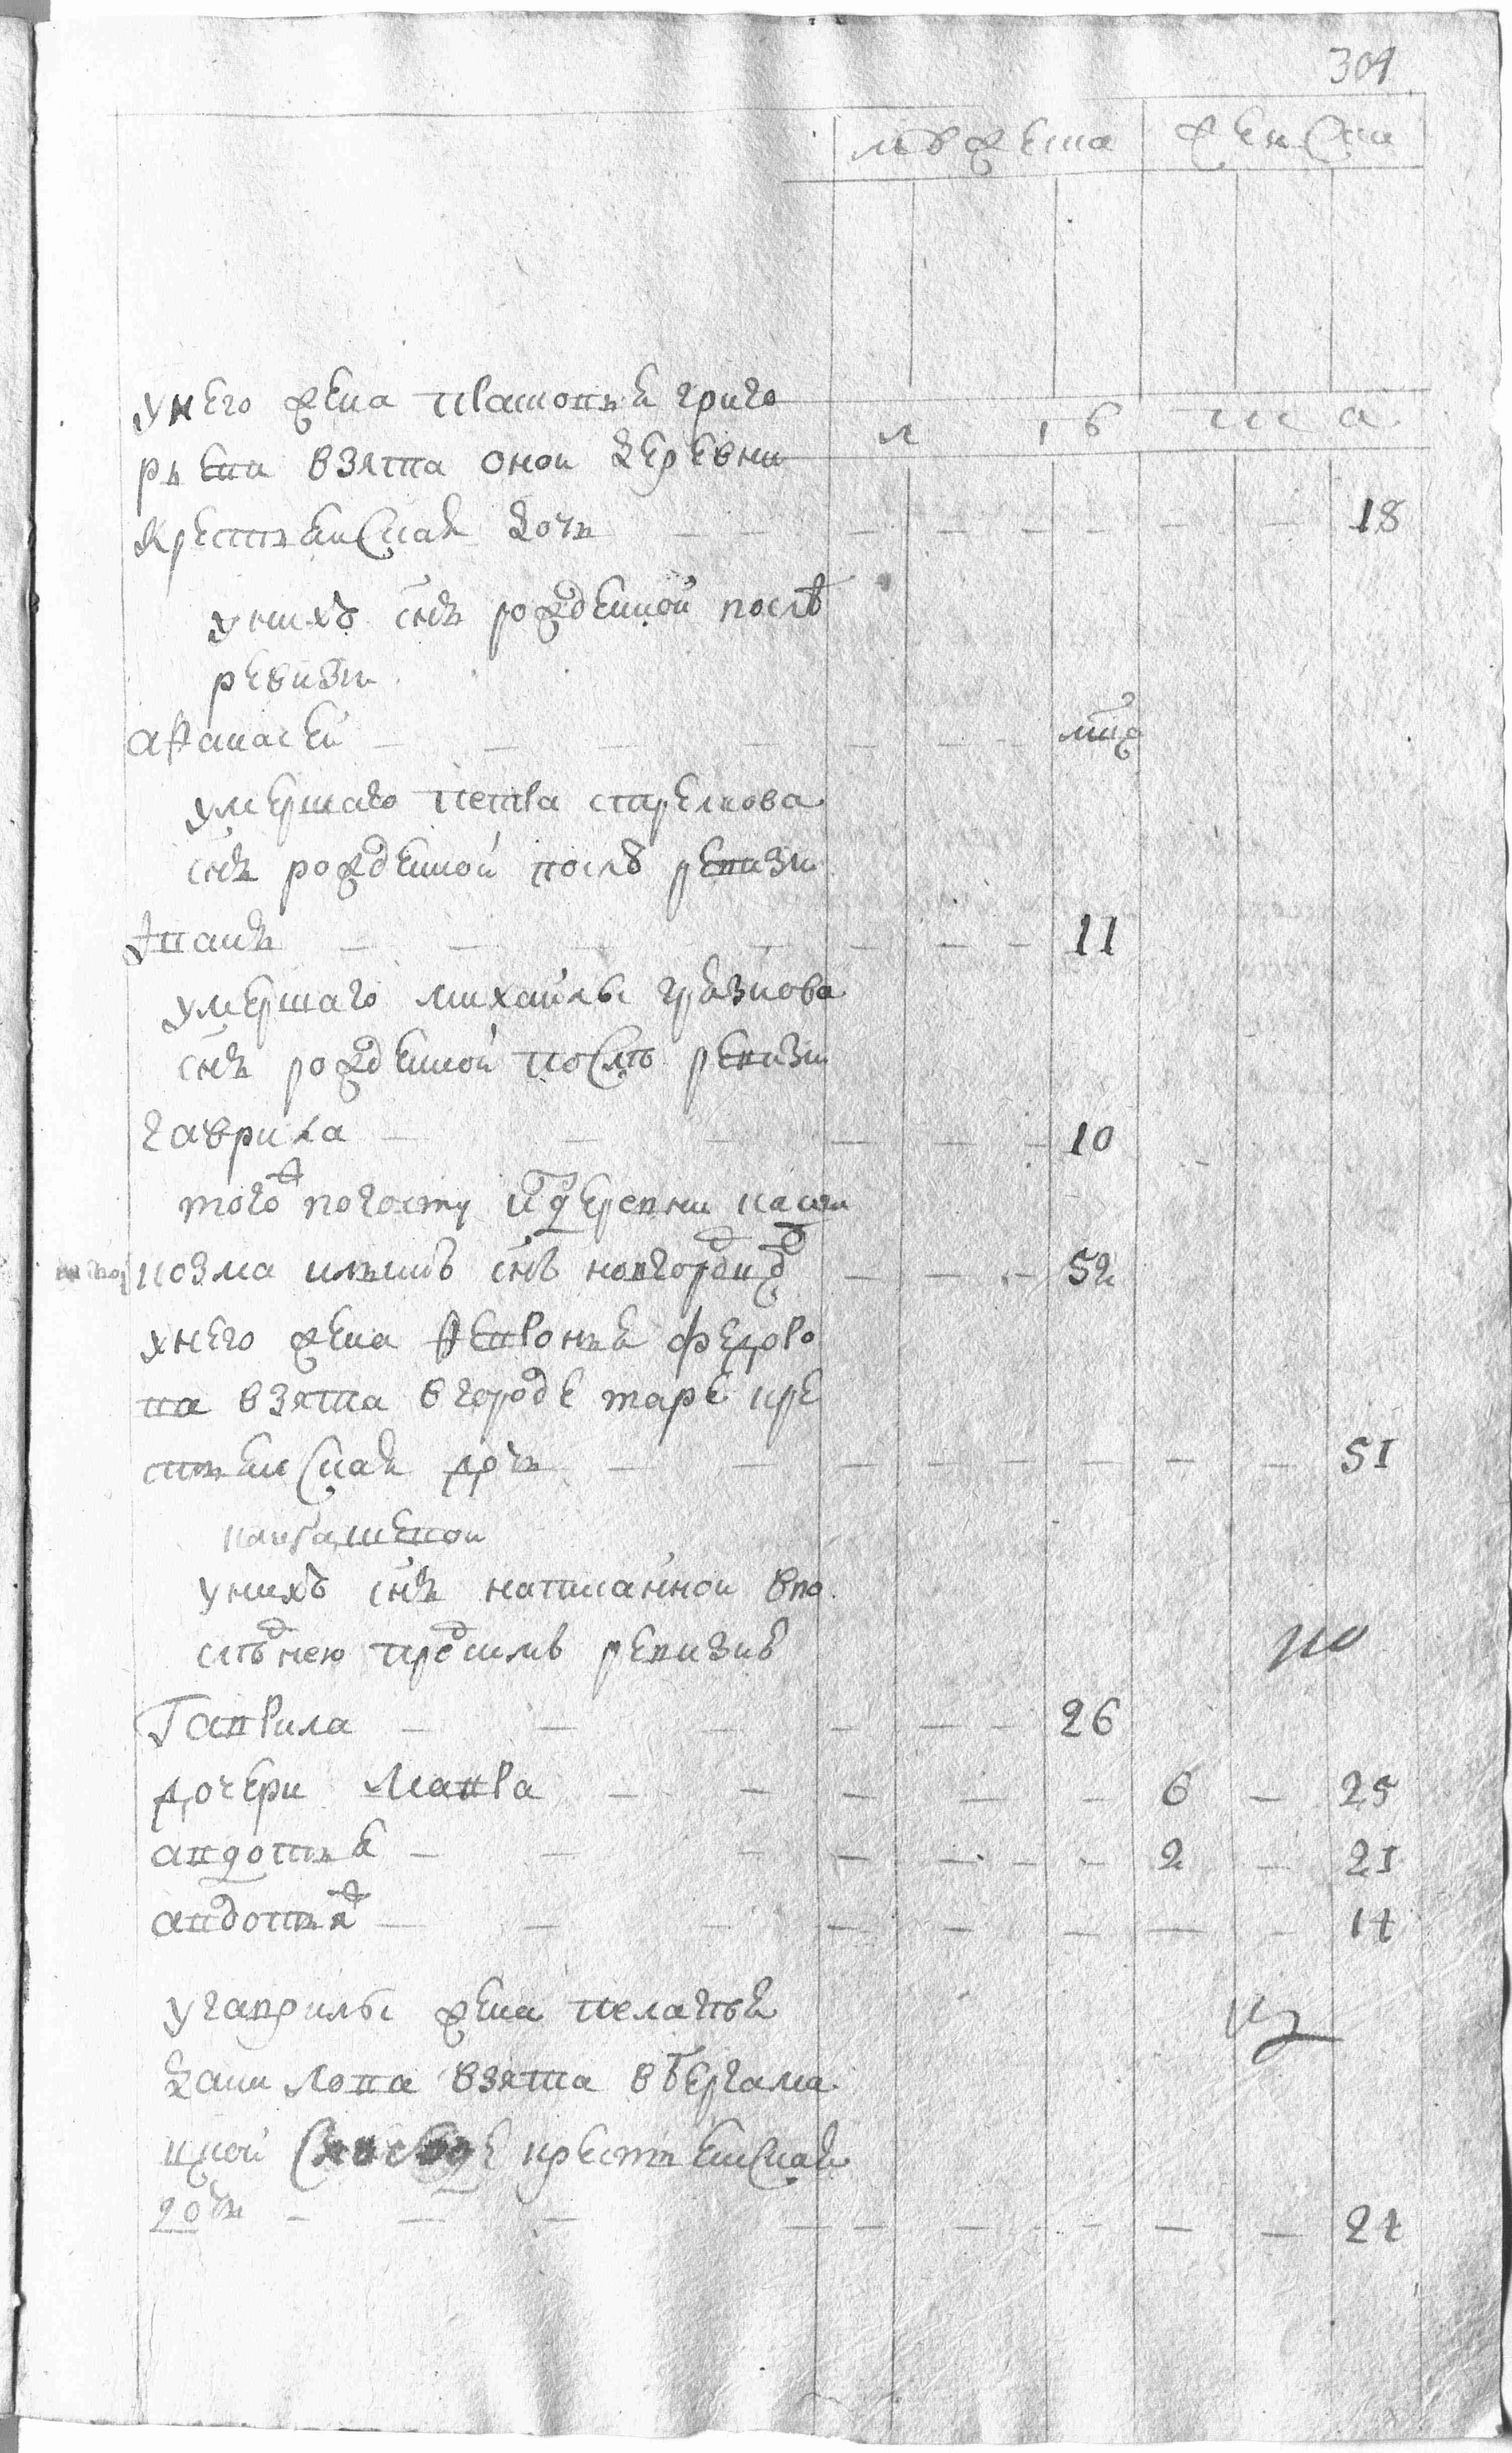 304
мужеска женска
у него жена платонья григо
л т а
рьева взята оной деревни
крестьянская дочь 18
у нихъ снъ рожденной послѣ
ревизи
афанасей
умершаго петра стрелкова
снъ рожденной послѣ ревизи
иванъ 11
умершаго михайлы грязнова
снъ рожденной послѣ ревизи
гаврила 10
того ж погосту из деревни
козма ильинъ снъ новгородцъ 52
у него жена февронья федоро
ва взята в городе таре кре
стьянская дочь 51
у нихъ снъ написанной в по
следнею пред симъ ревизию
Гаврила 26
дочери Мавра 6 25
авдотья 2 21
авдотья ж 14
у гаврилы жена пелагея
данилова взята в бергама
цкой слободе крестьянская
дочь 24